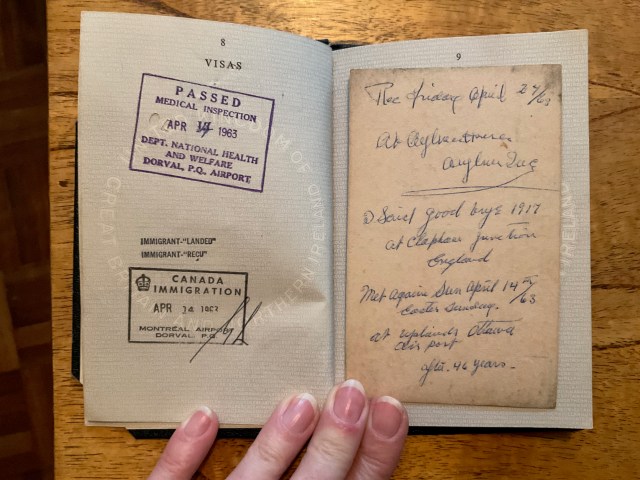 8
VISAS
PASSED
MEDICAL INSPECTION
APR 14 1963
DEPT. NATIONAL HEALTH
AND WELFARE
DORVAL, P.Q. AIRPORT
IMMIGRANT-"LANDED"
IMMIGRANT-"RECU"
CANADA
IMMIGRATION
APR 14 1963
MONTREAL AIRPORT
DORVAL P.Q.
9
Friday April 27/63
At
Aylmer Que
Said good bye 1917
at Clapham Junction
England
Met Again Sun April 14th/63
Easter Sunday.
at uplands Ottawa
air port
after 46 years.